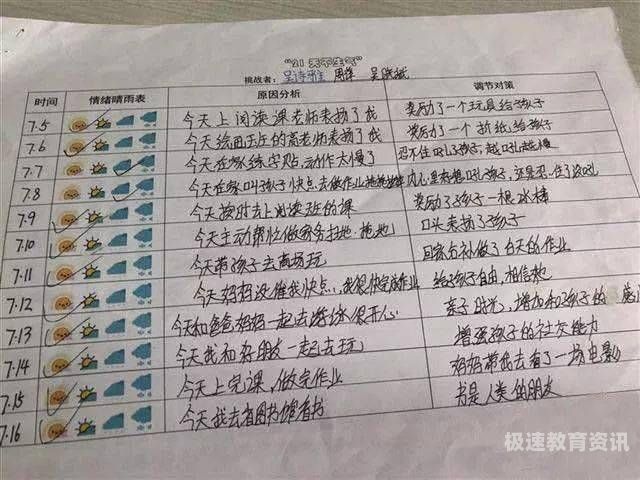 “21天不生气”
挑战者： 周华 吴晓斌
时间 情绪晴雨表 原因分析 调节对策
7.5 今天上阅读课老师表扬了我 奖励了一个玩具给孩子
7.6 今天绘画班的高老师表扬了我 奖励了一个折纸给孩子
7.7 今天在家练字贴,动作太慢了 忍不住吼了孩子,越吼越慢
7.8 今天在家叫孩子快点去做作业 内心是有想吼孩子,还是忍住了没吼
7.9 今天按时去上阅读班的课 奖励了孩子一根冰棒
7.10 今天主动帮忙做家务扫地、拖地 口头表扬了孩子
7.11 今天带孩子去商场玩 回家后补做了白天的作业
7.12 今天妈妈没催我快点,我很快完成作业 给孩子自由,相信她
7.13 今天和爸爸妈妈一起去游泳很开心 亲子时光,增加和孩子的
7.14 今天我和好朋友一起去玩 增强孩子的社交能力
7.15 今天上完课,做完作业 妈妈带我去看了一场电影
7.16 今天我去省图书馆看书 书是人类的朋友
极速教育资讯